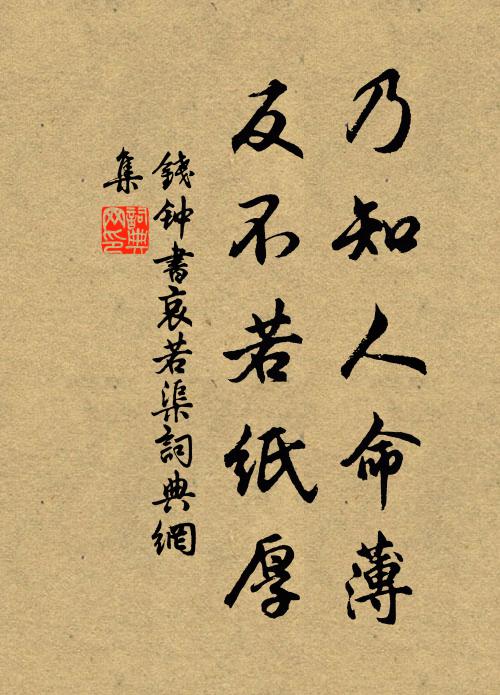 乃知人命薄
反不若紙厚
錢钟書哀若渠詞典網
集
詞典网印